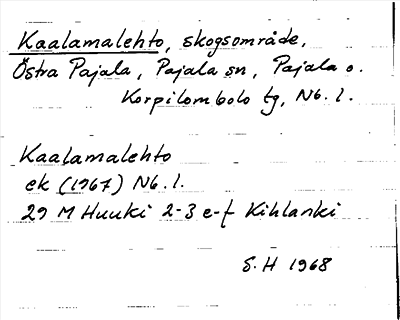 Kaalamalehto, skogsområde,
Östra Pajala, Pajala sn, Pajala o.
Korpilombolo tg, Nb. l.
Kaalamalehto
ek (1967) Nb. l.
29 M Huuki 2-3 e-f Kihlanki
S. H 1968